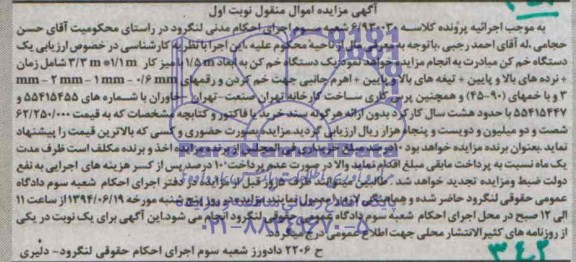 آگهی مزایده اموال منقول نوبت اول
به موجب اجرائیه پرونده کلاسه ۶/۹۳۰۰۳۰ شعبه سوم اجرای احکام مدنی لنگرود در راستای محکومیت آقای حسن
حجامی، له آقای احمد رجبی، باتوجه به معرفی مال از ناحیه محکوم علیه، این اجرا با نظریه کارشناسی در خصوص ارزیابی یک
دستگاه خم کن مبادرت به انجام مزایده خواهد نمود یک دستگاه خم کن به ابعاد ۱/۵ m با میز کار ۳/۳ m * ۱/۱ m شامل زمان
+ نرده های بالا و پایین + تیغه های بالا و پایین + اهرم جانبی جهت خم کردن و رقمهای ۰/۶ mm - ۱ mm - ۲ mm - mm
۳ و با خمهای (۹۰-۴۵) و همچنین پرس کاری ساخت کارخانه تهران صنعت- تهران خاوران با شماره های ۵۵۴۱۵۴۵۵ و
۵۵۴۱۵۴۴۷ با حدود هشت سال کارکرد بدون ارائه هرگونه سند خرید یا فاکتور و کتابچه مشخصات که به قیمت ۶۲/۲۵۰/۰۰۰
شصت و دو میلیون و دویست و پنجاه هزار ریال ارزیابی گردید. مزایده بصورت حضوری و کسی که بالاترین قیمت را پیشنهاد
نماید بعنوان برنده مزایده خواهد بود ۱۰درصد مبلغ خریداری فی المجلس از برنده مزایده اخذ و برنده مکلف است ظرف مدت
یک ماه نسبت به پرداخت مابقی مبلغ اقدام نماید والا در صورت عدم پرداخت ۱۰درصد پس از کسر هزینه های اجرایی به نفع
دولت ضبط و مزایده تجدید خواهد شد. طالبین میتوانند ظرف ۵ روز قبل از مزایده در دفتر اجرای احکام شعبه سوم دادگاه
عمومی حقوقی لنگرود حاضر شده و هماهنگی لازم را معمول نمایند مزایده در روز پنج شنبه مورخه ۱۳۹۴/۰۶/۱۹ از ساعت ۱۱
الی ۱۲ صبح در محل اجرای احکام شعبه سوم دادگاه عمومی حقوقی لنگرود انجام می شود. این آگهی برای یک نوبت در یکی
از روزنامه های کثیرالانتشار محلی جهت اطلاع عموم درج میگردد.
ح ۲۲۰۶ دادورز شعبه سوم اجرای احکام حقوقی لنگرود- دلیری
ParsNamadData
۰۲۱-۸۸۳۴۹۶۷۰-۵
۳۴۲